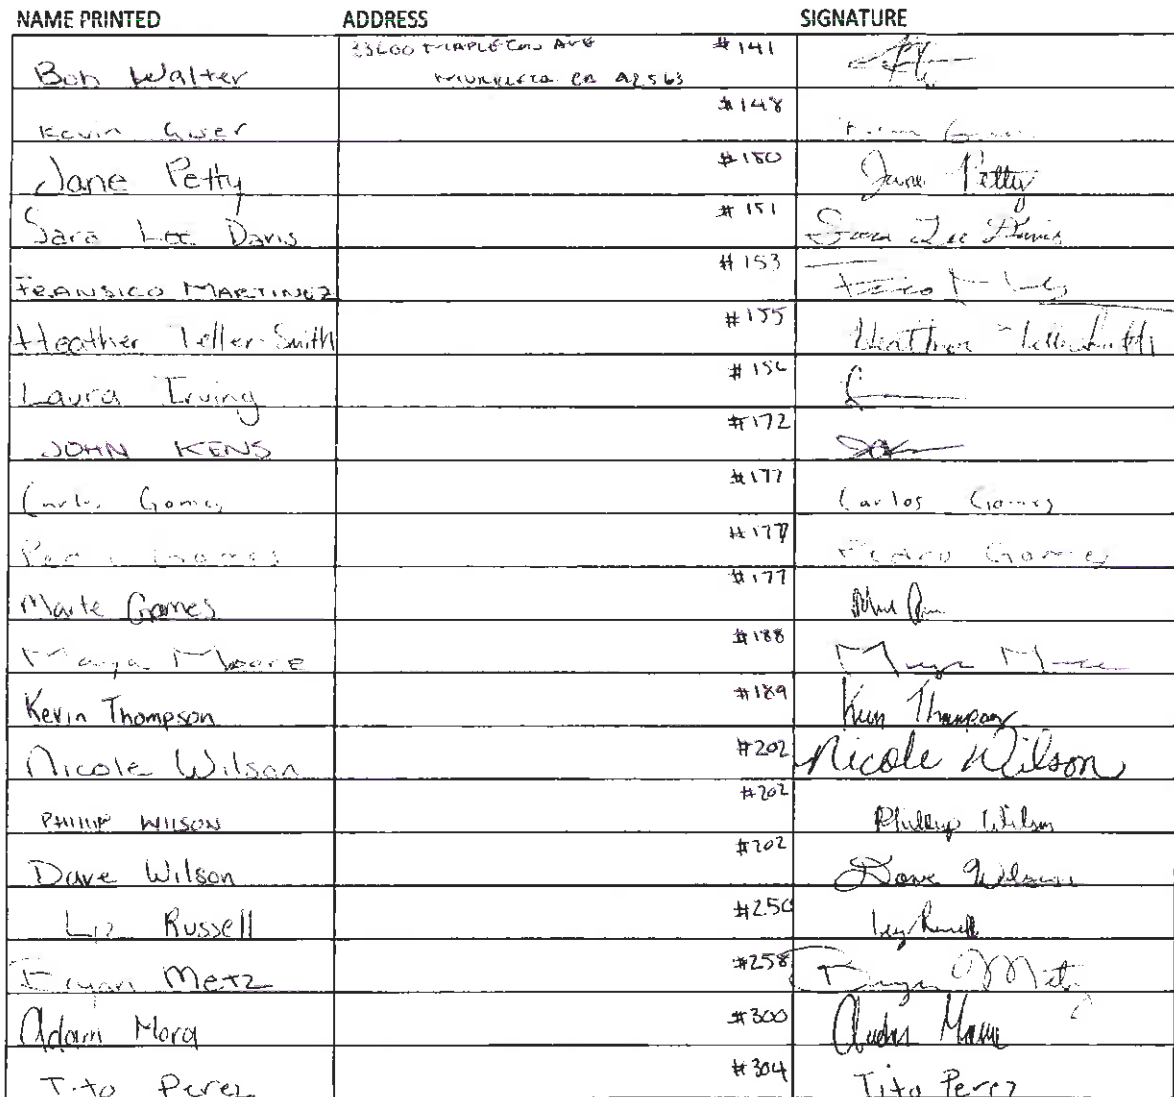 NAME PRINTED ADDRESS SIGNATURE
33600 MAPLETON AVE #141
Bob Walter MURRIETA CA 92563
#148
Kevin
Jane Petty #150 Jane Petty
Sara Lee Davis #151 Sara Lee Davis
FRANSICO MARTINEZ #153
Heather Teller-Smith #155 Heather Teller-Smith
Laura Irving #156
JOHN KENS #172
Carlos Gomes #177 Carlos Gomes
Gomes #177 Pedro Gomes
Marte Gomes #177
Maya Moore #188 Maya Moore
Kevin Thompson #189 Kevin Thompson
Nicole Wilson #202 Nicole Wilson
PHILLIP WILSON #202 Phillip Wilson
Dave Wilson #202 Dave Wilson
Liz Russell #250 Russell
Bryan Metz #258 Bryan Metz
Adam Mora #300 Mora
Tito Perez #304 Tito Perez